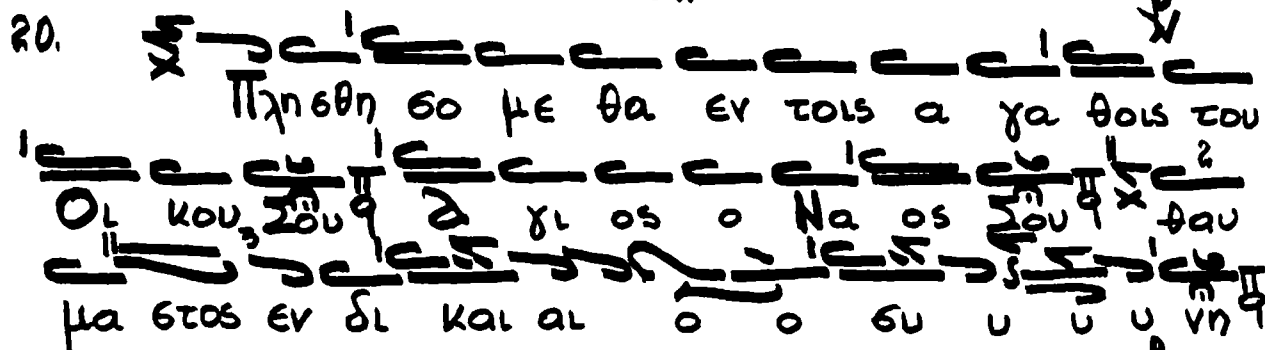 20.
Πλησθησομεθα εν τοις αγαθοις του
Οικου, Σου Αγιος ο Ναος Σου θαυ
μαστος εν δικαιαιοοσυυυυνη